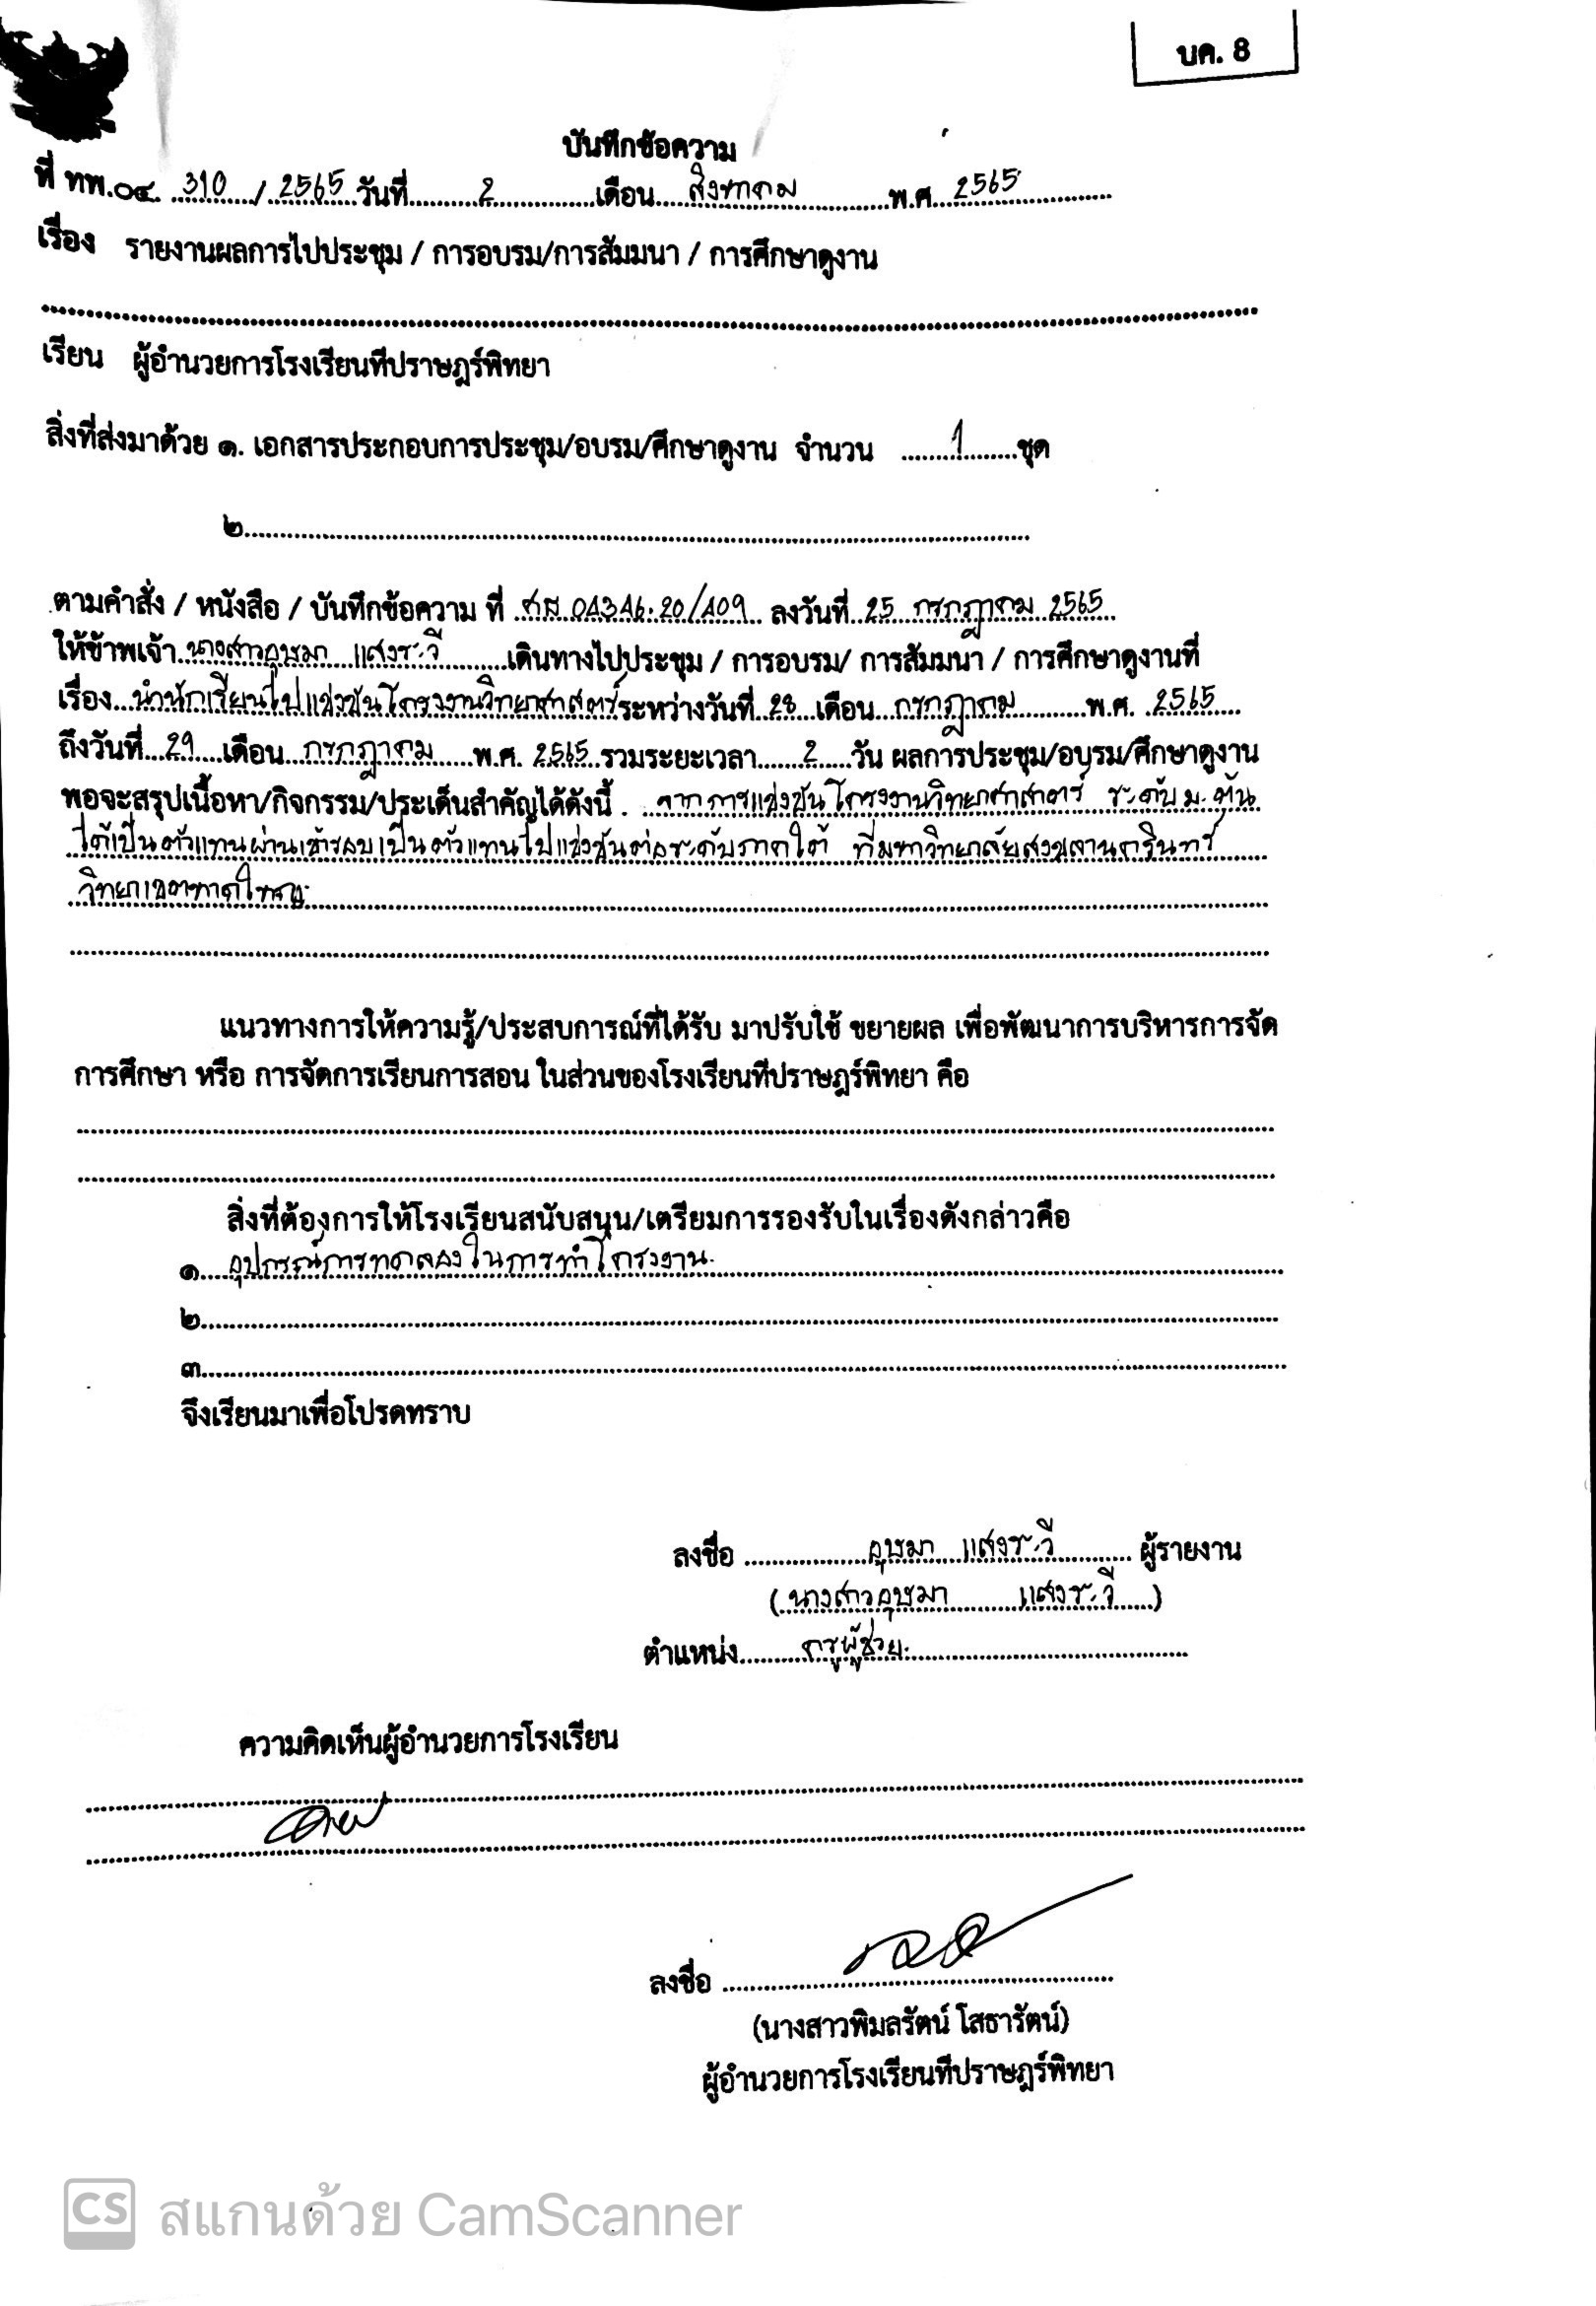 บค. 8
บันทึกข้อความ
ที่ ทพ.๐๔. 310 / 2565 วันที่ 2 เดือน สิงหาคม พ.ศ. 2565
เรื่อง รายงานผลการไปประชุม / การอบรม/การสัมมนา / การศึกษาดูงาน
เรียน ผู้อำนวยการโรงเรียนทีปราษฎร์พิทยา
สิ่งที่ส่งมาด้วย ๑. เอกสารประกอบการประชุม/อบรม/ศึกษาดูงาน จำนวน 1 ชุด
๒
ตามคำสั่ง / หนังสือ / บันทึกข้อความ ที่ 04346.20/409 ลงวันที่ 25 กรกฎาคม 2565
ให้ข้าพเจ้า นางสาวอุษมา แสงระวี เดินทางไปประชุม / การอบรม/ การสัมมนา / การศึกษาดูงานที่
เรื่อง นำนักเรียนไปแข่งขันโครงงานวิทยาศาสตร์ ระหว่างวันที่ 28 เดือน กรกฎาคม พ.ศ. 2565
ถึงวันที่ 29 เดือน กรกฎาคม พ.ศ. 2565 รวมระยะเวลา 2 วัน ผลการประชุม/อบรม/ศึกษาดูงาน
พอจะสรุปเนื้อหา/กิจกรรม/ประเด็นสำคัญได้ดังนี้ . จากการแข่งขันโครงงานวิทยาศาสตร์ ระดับ ม.ต้น
ได้เป็นตัวแทนผ่านเข้ารอบเป็นตัวแทนไปแข่งขันต่อระดับภาคใต้ ที่มหาวิทยาลัยสงขลานครินทร์
วิทยาเขตหาดใหญ่
แนวทางการให้ความรู้/ประสบการณ์ที่ได้รับ มาปรับใช้ ขยายผล เพื่อพัฒนาการบริหารการจัด
การศึกษา หรือ การจัดการเรียนการสอน ในส่วนของโรงเรียนทีปราษฎร์พิทยา คือ
สิ่งที่ต้องการให้โรงเรียนสนับสนุน/เตรียมการรองรับในเรื่องดังกล่าวคือ
๑. อุปกรณ์การทดลองในการทำโครงงาน
๒
๓
จึงเรียนมาเพื่อโปรดทราบ
ลงชื่อ อุษมา แสงระวี ผู้รายงาน
(นางสาวอุษมา แสงระวี)
ตำแหน่ง ครูผู้ช่วย
ความคิดเห็นผู้อำนวยการโรงเรียน
ลงชื่อ
(นางสาวพิมลรัตน์ โสธารัตน์)
ผู้อำนวยการโรงเรียนทีปราษฎร์พิทยา
CS สแกนด้วย CamScanner